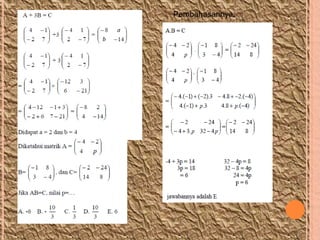 Pembahasannya
A + 3B = C
(4 -1 -2 7) +3 (-4 1 2 -7) = (-8 a b -14)
(4 -1 -2 7) +3 (-4 1 2 -7) =
= (4 -1 -2 7) + (-12 3 6 -21)
= (4-12 -1+3 -2+6 7-21) = (-8 2 4 -14)
Didapat a = 2 dan b = 4
Diketahui matrik A = (-4 -2 4 p)
B= (-1 8 3 -4), dan C= (-2 -24 14 8)
Jika AB=C, nilai p=. . .
A. -6 B. - 10/3 C. 1/3 D. 10/3 E. 6
A.B = C
(-4 -2 4 p) . (-1 8 3 -4) = (-2 -24 14 8)
(-4 -2 4 p) . (-1 8 3 -4)
= (-4.(-1) + (-2).3 -4.8 + -2.(-4) 4.(-1) + p.3 4.8 + p.(-4))
= (-2 -24 -4+3p 32-4p) = (-2 -24 14 8)
-4 + 3p = 14 32 - 4p = 8
3p = 18 32 - 8 = 4p
= 6 24 = 4p
p = 6
jawabannya adalah E